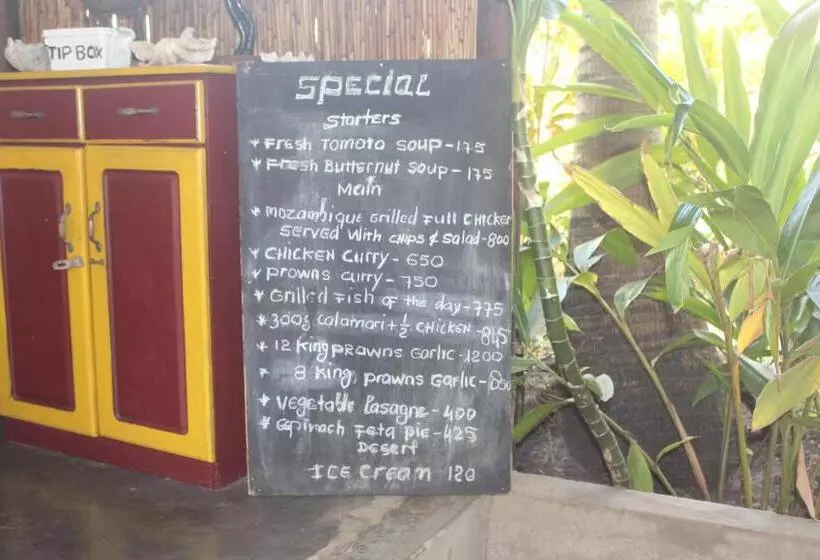 TIP BOX
Special
Starters
* Fresh Tomato Soup - 175
* Fresh Butternut Soup - 175
Main
* Mozambique Grilled Full CHICKEN
Served With CHIPS & Salad - 800
* CHICKEN Curry - 650
* Prowns curry - 750
* Grilled Fish of the day - 775
* 300g calamari + ½ CHICKEN - 845
* 12 King prawns Garlic - 1200
* 8 King prawns Garlic -
* Vegetable lasagne - 400
* Spinach Feta pie - 425
Desert
ICE Cream 120